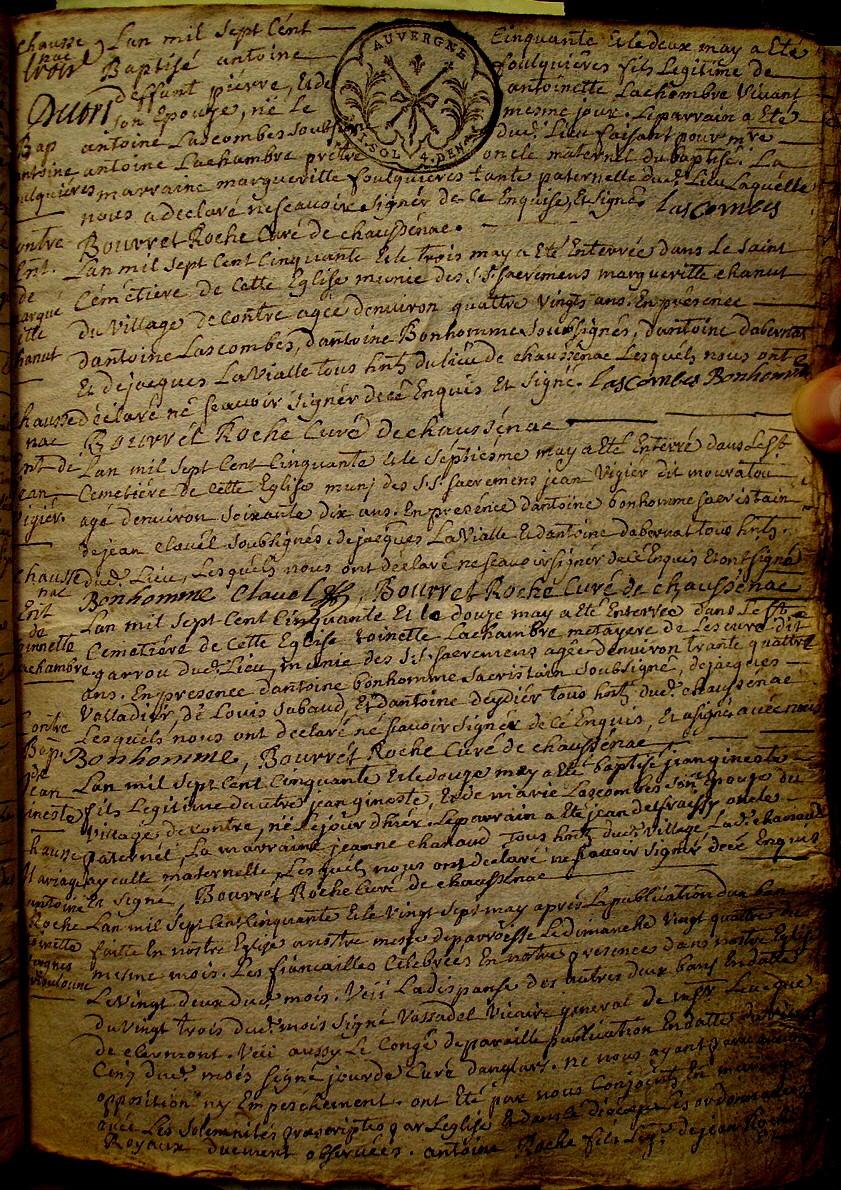 Chaussenac
Lan mil Sept Cent Cinquante et le deux may a Eté
Baptisé antoine foulquières fils Legitime de
deffunt pierre, Et de antoinette Lachambre Vivant
son Epouze, né le mesme jour. Le parrain a Eté
antoine Lascombes Soussigné duđ. Lieu faisant pour mre
antoine Lachambre prêtre oncle maternel du baptisé. La
marraine margueritte foulquieres tante paternelle duđ. Lieu Laquelle
nous a declaré ne scavoir Signér de Ce Enquise, Et Signé Lascombes
Bourret Roche Curé de chaussénac.
AUVERGNE
SOL 4. DEN
Bap
antoine
foulquières
Contre
Ent.
de
margueritte
chanut
Lan mil Sept Cent Cinquante Et le trois may a Eté Enterrée dans Le Saint
Cémétiere de Cette Eglise munie des S.S. sacremens margueritte chanut
du Village de Contre agée denviron quattre Vingts ans. En présence
dantoine Lascombes, dantoine Bonhomme Soussignés, dantoine dabernat
Et de jacques La Vialle tous hnts du lieu de chaussénac Lesquels nous ont
déclaré né scavoir Signér de cé Enquis Et Signé. Lascombes Bonhomme
Bourrét Roche Curé de chaussénac
Chaussenac
Ent de
jean
Vigier.
Lan mil Sept Cent Cinquante Et le Séptiesme may a Eté Enterré dans Le St
Cemetiére de Cette Eglise muni des S.S. sacremens jean Vigier dit mouratou
agé denviron Soixante dix ans. En presénce dantoine bonhomme sacristain
de jean clavél Soussignés, de jacques La Vialle Et dantoine dabernat tous hnts.
duđ. Lieu, Lesquels nous ont déclaré ne scavoir signér de cé Enquis Et ont signé
Bonhomme Clavel, Bourret Roche Curé de chaussénac
Chaussenac
Ent
de
toinette
Lachambre
Lan mil Sept Cent Cinquante Et le douze may a Eté Enterrée dans Le St
Cemetiére de Cette Eglise toinette Lachambre metayere de dit
garrou duđ. Lieu, munie des S.S. sacremens agée denviron trante quattre
ans. En presence dantoine bonhomme Sacristain Soussigné, dejacques
Valladier, de Louis Subaud, Et dantoine deydiér tous hnts duđ. chaussénac
Lesquels nous ont declaré né scavoir Signér de Cé Enquis, Et a signé avéc nous
Bonhomme, Bourrét Roche Curé de chaussénac
Contre
Bap.
de
jean
gineste
Lan mil Sept Cent Cinquante Et le douze may a Eté baptisé jean gineste
fils Legitime dautre jean gineste, Et de marie Lascombes Son Epouze du
Village de Contre, né Le jour dhiér. Le parrain a Eté jean delfraissy oncle
paternél, La marraine jeanne chanaud tous hnts duđ. Village, Lađ. chanaud
ayeulle maternelle, Lesquels nous ont declaré ne scavoir Signér de cé Enquis
Et Signé, Bourrét Roche Curé de chaussénac
Chaussenac
Mariage
antoine
Roche
toinette
Lan mil Sept Cent Cinquante Et le Vingt Sept may apres La publication dun ban
faitte En nostre Eglise a nostre messe de parroisse Le dimanche Vingt quattre du
mesme mois. Les fiancailles Célébrées En nostre presence dans nostre Eglise
Le Vingt deux duđ. mois. Veü La dispanse des autres deux bans En datte
du Vingt trois duđ. mois Signé Vassadel Vicaire general de Leveque
de clermont. Veü aussy Le Congé de paraille publication En datte du
Cinq duđ. mois signé jourde Curé danglars. ne nous ayant paru aucune
opposition ny Empeschement. ont Eté par nous Conjoints En mariage
avéc Les Solemnités prescriptes par Leglise Et dans Le Les ordonnances
Royaux duement observées. antoine Roche fils Leg. de jean Roche